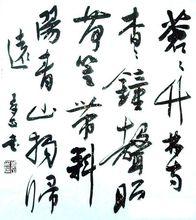 蒼々竹林寺
杳々鐘聲晚
荷笠帶斜
陽青山獨歸
遠